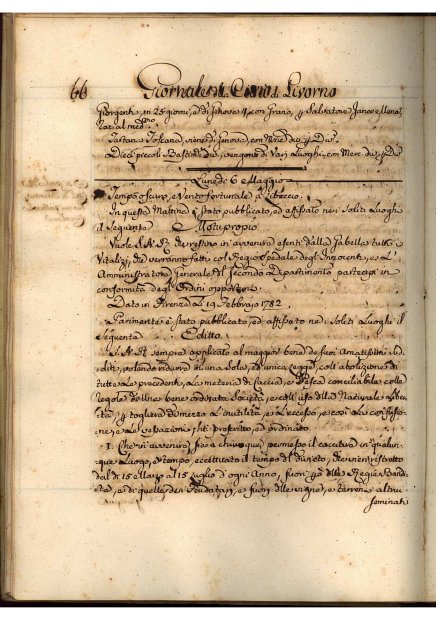 66 Giornale di Livorno
Giorgenti in 25 giorni, e di Genova 4, con Grano, p Salvatore
al med.mo
Tartana Toscana, viene di Genova, con Merc
Dieci piccoli Bastim.ti vengono di Varj Luoghi, con Merc
Lunedì 6 Maggio
Tempo oscuro, e Vento fortunale a Libeccio.
In questa Mattina è stato pubblicato, ed affissato nei Soliti Luoghi
il Seguente Motuproprio
Vuole S.A.R. che restino in avvenire esenti dalla Gabella tutti i
Vitalizj, che verranno fatti col Regio Spedale degl'Innocenti, e l'
Amministratore Generale del Secondo Dipartimento partecipi in
conformità degl'Ordini opportuni.
Dato in Firenze Li 19 Febbrajo 1782.
Parimente è stato pubblicato, ed affissato nei Soliti Luoghi il
Seguente Editto.
S.A.R. sempre applicato al maggior bene de suoi Amatissimi Sud-
diti, volendo ridurre in una sola, ed unica Legge, coll'abolizione di
tutte le precedenti, la materia di Caccia, e Pesca conciliabile colle
Regole d'ottima bene ordinata Società, e coll'uso della Naturale Liber-
tà, e togliere di mezzo l'inutilità, e l'eccesso, e con la confusio-
ne, e la vessazione, ha prescritto, ed ordinato.
1. Che in avvenire sia a chiunque permesso il cacciare in qualun-
que Luogo, e tempo, eccettuato il tempo del divieto, che vien ristretto
dal dì 15 Marzo al 15 Luglio d'ogni Anno, fuori p delle Regie Bandi-
te, e di quelle dei Feudatarj, e fuori delle vigne, e terreni altrui
seminati